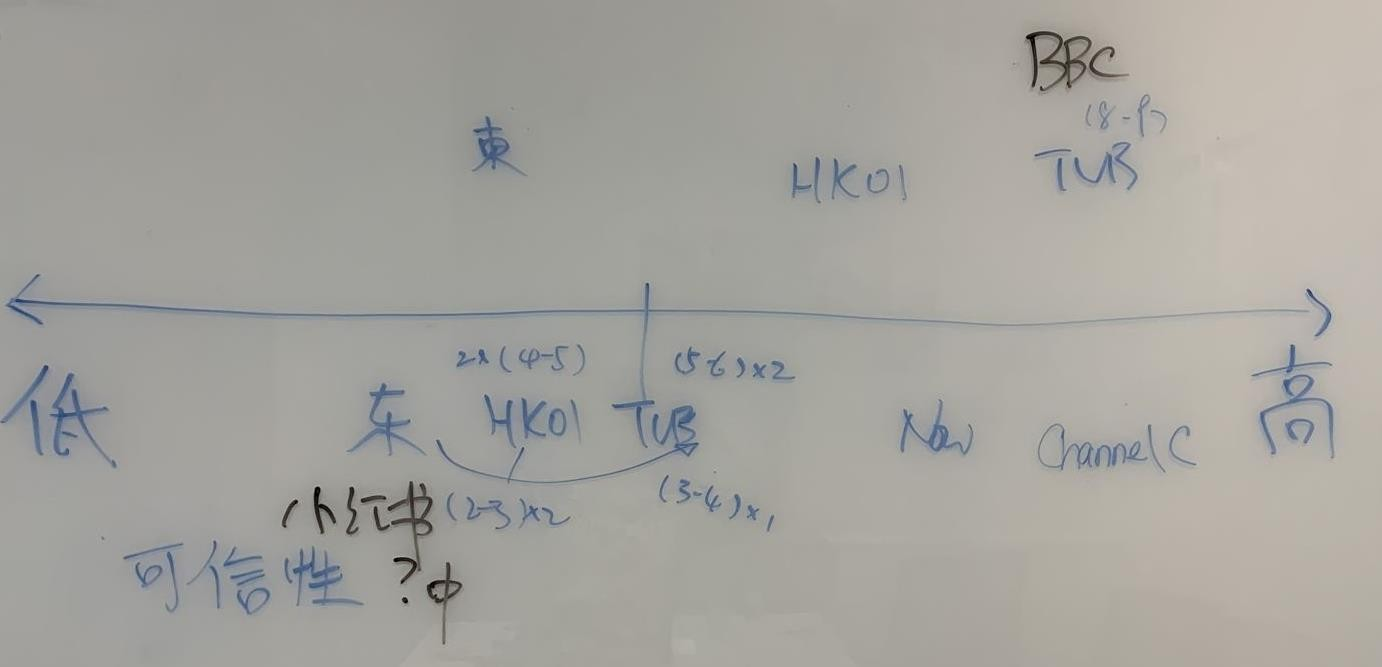 BBC
(8-9)
東 HK01 TVB
2x(4-5) (5-6)x2
低 东 HK01 TVB Now Channel C 高
小红书 (2-3)x2 (3-4)x1
可信性 ? 中